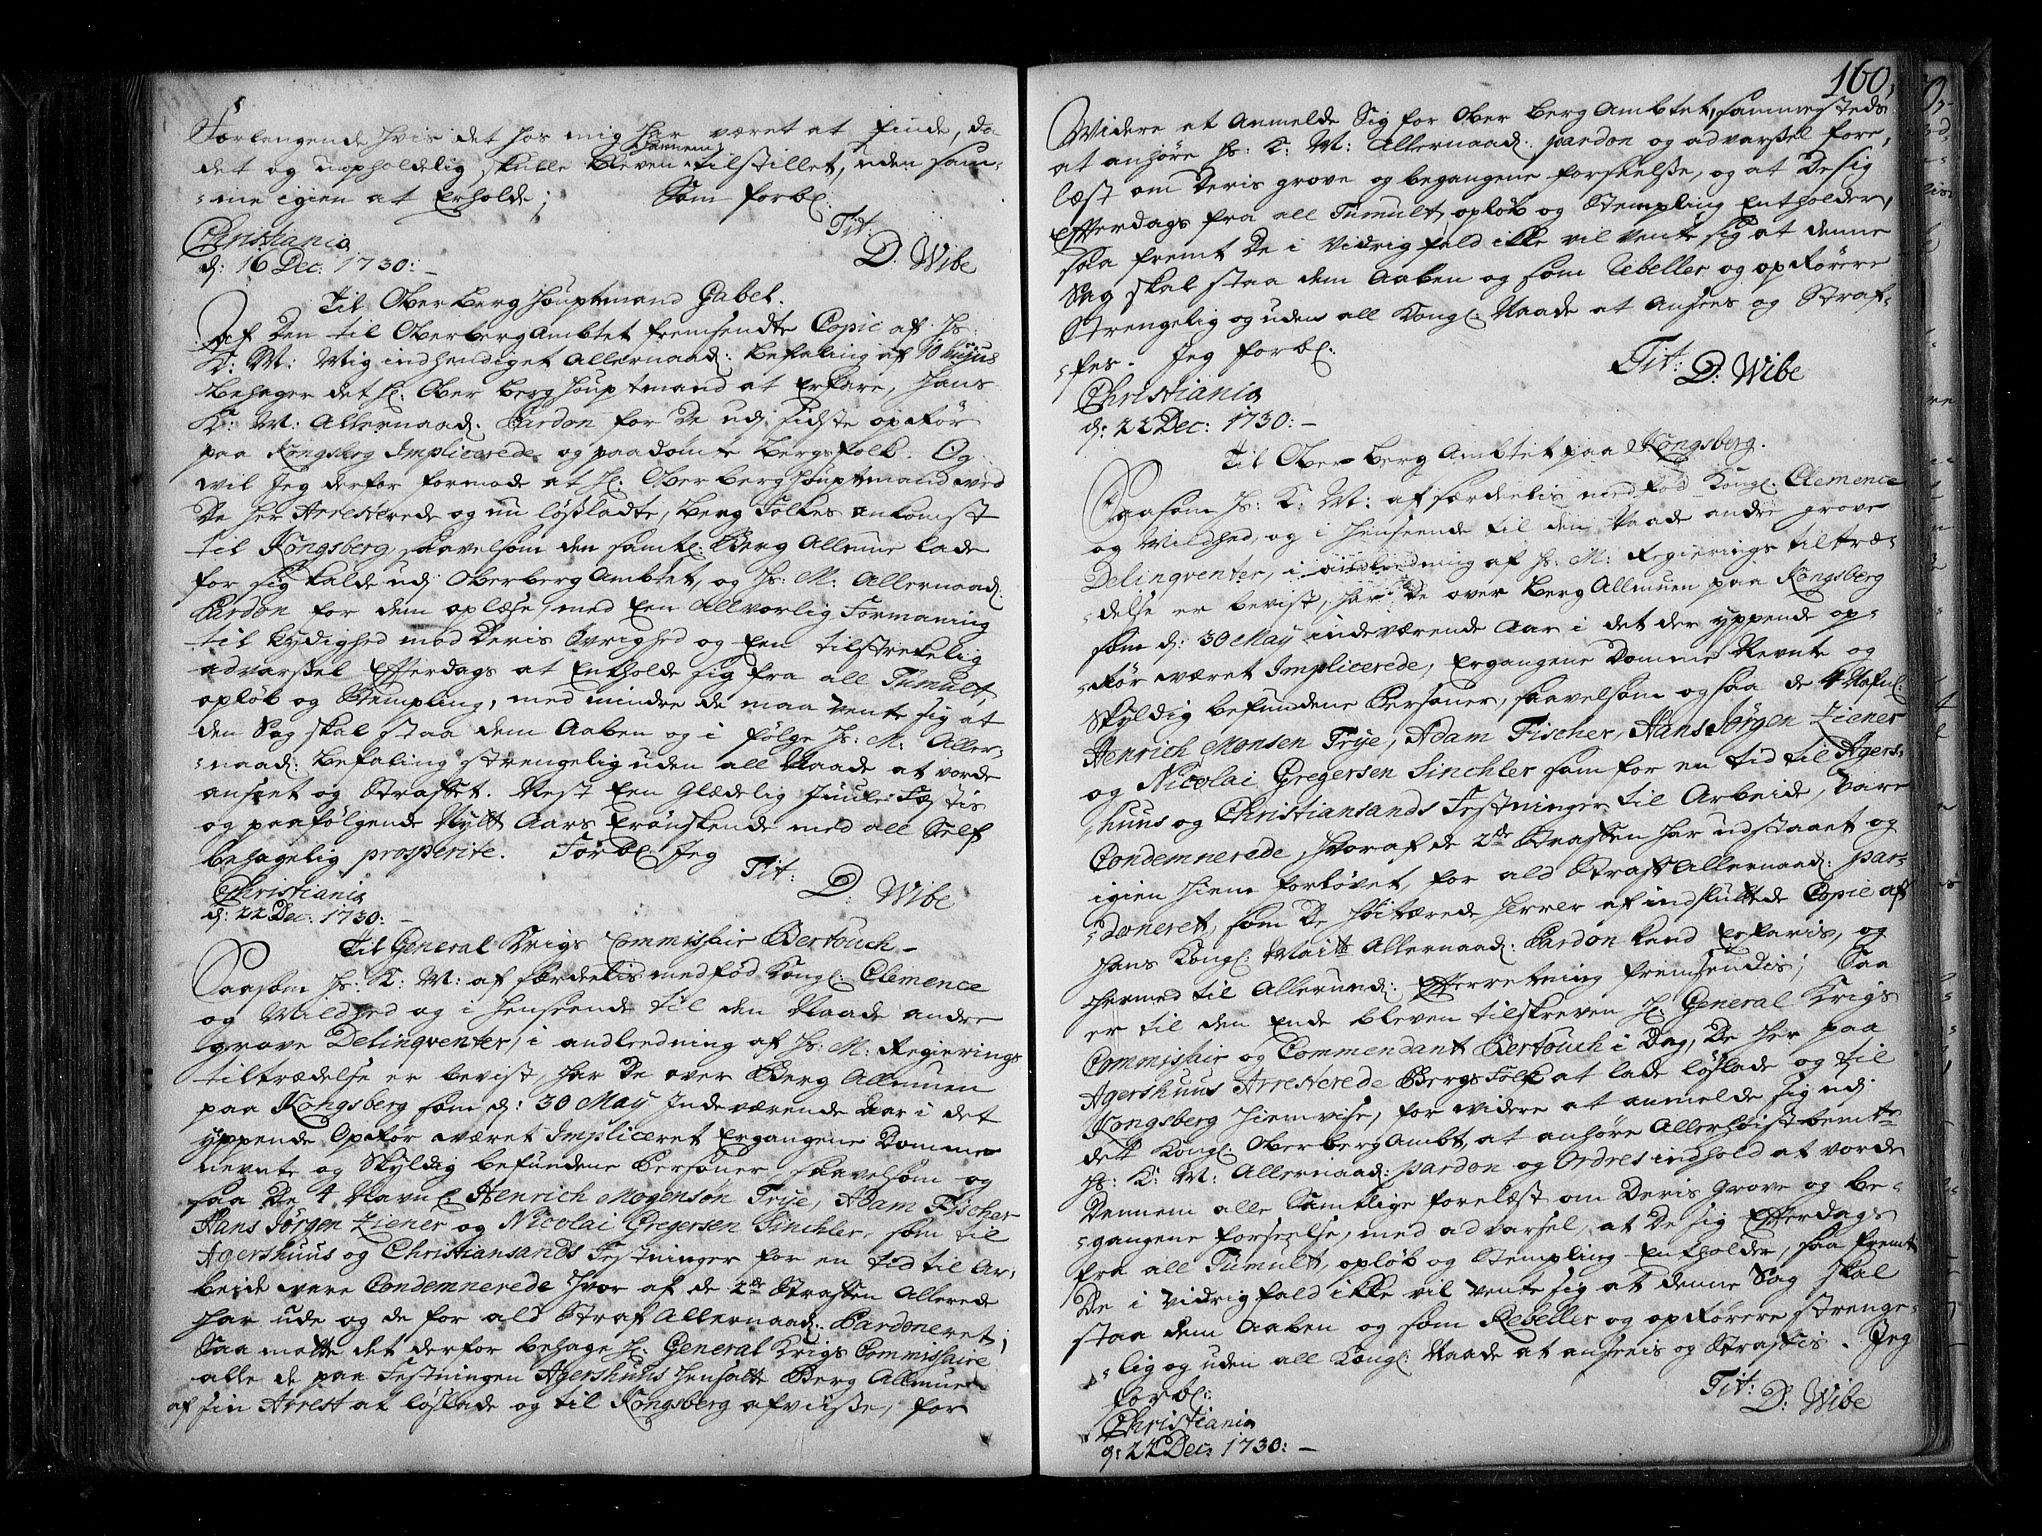 Forlengende hvis det hos mig har været at finde, da
det og uopholdelig skulle bleven dennem tilstillet, uden sam-
-me igien at Erholde; Som forbl:
Tit:
D. Wibe
Christiania
d: 16 Dec: 1730:
Til Ober Berg Houptmand Gabel.
Af den til OberbergAmbtet fremsendte Copie af Hs:
K: M: Mig indhendiget Allernaad: Befaling af 10 hujus
Behager det H: Ober Berg Houptmand at Erfare, Hans
K: M: Allernaad: Pardon for De udi sidste opkiør
paa Kongsberg Implicerede og paadømte Bergfolk. Og
wil Jeg derfor formode at H: Ober Berg Houptmand ved
De her Arresterede og nu løsladte, Berg Folkes ankomst
til Kongsberg, saavelsom den samtl: Berg Allmue lade
for sig kalde udi OberbergAmbtet, og Hs: M: Allernaad:
Pardon for dem oplæse, med Een Allvorlig Formaning
til Lydighed mod Deris Øvrighed og Een tilstrekelig
advarssel Effterdags at Entholde sig fra all Tumult,
opløb og Stempling, med mindre de maa vente sig at
den Sag skal staa dem Aaben og i følge Hs: M: Aller-
-naad: Befaling strengelig uden all Naade at vorde
anseet og Straffet. Nest Een Glædelig Juule Fæstis
og paafølgende Nytt Aars Erønskende med all Self
behagelig prosperite. Forbl: Jeg
Tit:
D. Wibe
Christiania
d: 22 Dec: 1730:
Til General Krigs Commissair Bertouch
Saasom Hs: K: M: af særdeelis medfød Kongl: Clemence
og Mildhed og i henseende til den Naade andre
grove Delinqventer, i anledning af Hs: M: Regierings
tiltrædelse er bevist, har De over Berg Allmuen
paa Kongsberg som d: 30 May Indeværende Aar i det
yppende Opkiør været Impliceret Ergangene Domme
nevnte og Skyldig befundene Personer, saavelsom og
saa De 4 Navnl: Henrich Mogensøn Trye, Adam Fischer
Hans Jørgen Ziener og Nicolai Gregersen Sinchler, som til
Agershuus og Christiansands Festninger for en tid til Ar-
beide vare Condemnerede hvor af de 2de Straffen Allerede
har ude og de for ald Straf Allernaad: Pardoneret;
Saa motte det derfor behage H: General Krigs Commissaire
alle de paa Festningen Agershuus hensatte Berg Allmue
af sin Arrest at løslade og til Kongsberg afviisse, for
160,
Widere at Anmelde Sig for Ober Berg Ambtet, sammesteds
at anhøre Hs: K: M: Allernaad: pardon og advarssel fore-
læst om Deris grove og begangene forseelsse, og at De sig
Effterdags fra all Tumult, opløb og Stempling Entholder,
saa fremt De i Vidrig fald ikke vil vente sig at denne
Sag skal staa dem Aaben og som Rebeller og opkiørere
Strengelig og uden all Kongl: Naade at Ansees og Straf-
-fes. Jeg forbl:
Tit:
D: Wibe
Christiania
d: 22 Dec: 1730:
Til Ober Berg Ambtet paa Kongsberg.
Saasom Hs: K: M: af særdeelis medfød Kongl: Clemence
og Mildhed, og i henseende til den Naade andre grove
Delinqventer, i andledning af Hs: M: Regierings tiltræ-
-delse er bevist, har De over Berg Allmuen paa Kongsberg
som d: 30 May indeværende Aar i det der yppende op-
-kiør været Implicerede, Ergangene Domme Nevnte og
Skyldig befundene Personer, saavelsom ogsaa de 4 Nafnl:
Henrich Monsen Trye, Adam Fischer, Hans Jørgen Ziener
og Nicolai Gregersen Sinchler som for en tid til Agers-
huus og Christiansands Festninger til Arbeide, vare
Condemnerede, hvoraf de 2de Straffen har udstaaet og
igien hiem forløvet, for ald Straf Allernaad: par-
-doneret, som De Høitærede Herrer af indsluttede Copie af
Hans Kongl: Maitts Allernaad: Pardon kand Erfaris, og
hermed til Allerund: Effterretning fremsendis; Saa
er til den Ende bleven tilskreven H: General Krigs
Commissair og Commendant Bertouch i Dag, De her paa
Agershuus Arresterede Bergs Folk at lade løslade og til
Kongsberg hiemvise, for widere at anmelde sig udi
dett Kongl: OberbergAmbt, at anhøre Allerhøistbemte
Hs: K: M: Allernaad: pardon og Ordres indhold at vorde
Dennem alle Samtlige forelæst om Deris Grove og be-
-gangene forseelse, med advarsel, at De sig Effterdags
fra all Tumult, opløb og Stempling Entholder, saa fremt
De i Vidrig fald ikke vil vente sig at denne Sag skal
staa dem Aaben og som Rebeller og opkiørere strenge-
-lig og uden all Kongl: Naade at anseeis og Straffis. Jeg
forbl:
Tit:
D: Wibe
Christiania
d: 22 Dec: 1730: